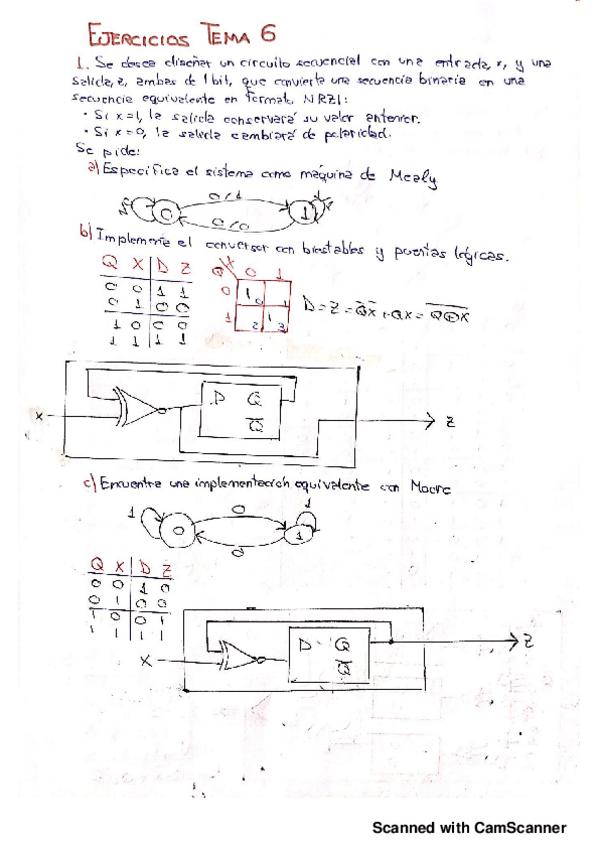 EJERCICIOS TEMA 6
1. Se desea diseñar un circuito secuencial con una entrada, x, y una
salida, z, ambas de 1 bit, que convierta una secuencia binaria en una
secuencia equivalente en formato NRZI:
• Si x=1, la salida conservará su valor anterior.
• Si x=0, la salida cambiará de polaridad.
Se pide:
a) Especifica el sistema como máquina de Mealy
0/1
0 1
0/0
b) Implementa el conversor con biestables y puertas lógicas.
Q X D Z
0 0 1 1
0 1 0 0
1 0 0 0
1 1 1 1
Q X 0 1
0 1 0 1
1 2 1 3
D = Z = Q̅X̅ + QX = \overline{Q⊕X}
D Q
Q̅
X
Z
c) Encuentra una implementación equivalente con Moore
1 0 0 1 1
0
Q X D Z
0 0 1 0
0 1 0 0
1 0 0 1
1 1 1 1
D Q
Q̅
X
Z
Scanned with CamScanner